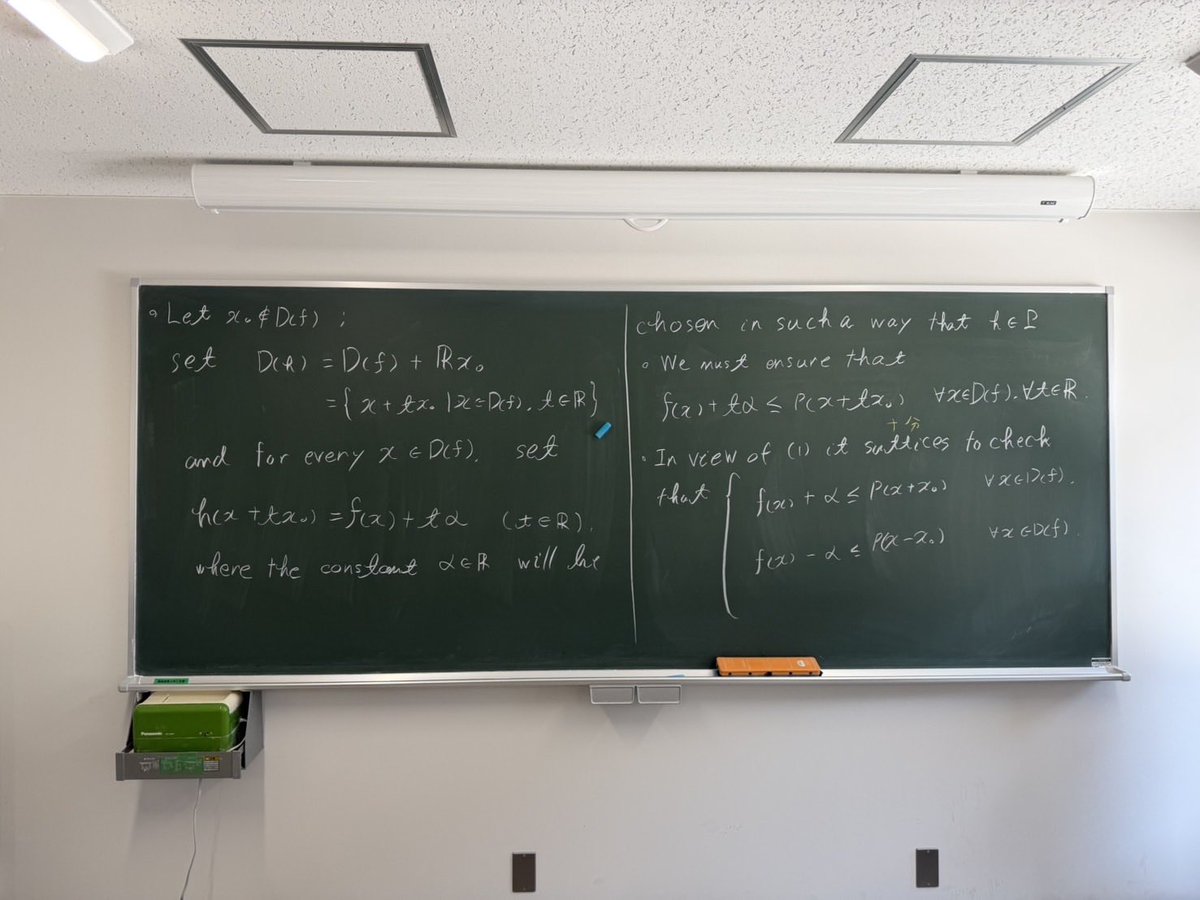 ◦ Let x₀ ∉ D(f) ;
set D(h) = D(f) + ℝx₀
= { x + tx₀ | x ∈ D(f), t ∈ ℝ }
and for every x ∈ D(f), set
h(x + tx₀) = f(x) + tα (t ∈ ℝ),
where the constant α ∈ ℝ will be
chosen in such a way that h ∈ P
◦ We must ensure that
f(x) + tα ≤ P(x + tx₀) ∀x∈D(f), ∀t∈ℝ.
十分
◦ In view of (1) it suffices to check
that { f(x) + α ≤ P(x+x₀) ∀x∈D(f),
f(x) − α ≤ P(x−x₀) ∀x∈D(f).
Panasonic